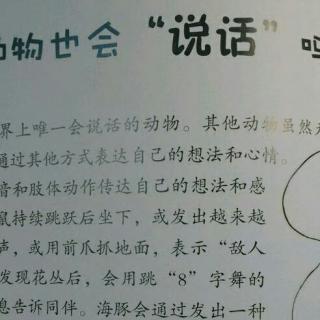 动物也会“说话”吗
界上唯一会说话的动物。其他动物虽然
通过其他方式表达自己的想法和心情。
音和肢体动作传达自己的想法和感
鼠持续跳跃后坐下，或发出越来越
声，或用前爪抓地面，表示“敌人
发现花丛后，会用跳“8”字舞的
息告诉同伴。海豚会通过发出一种